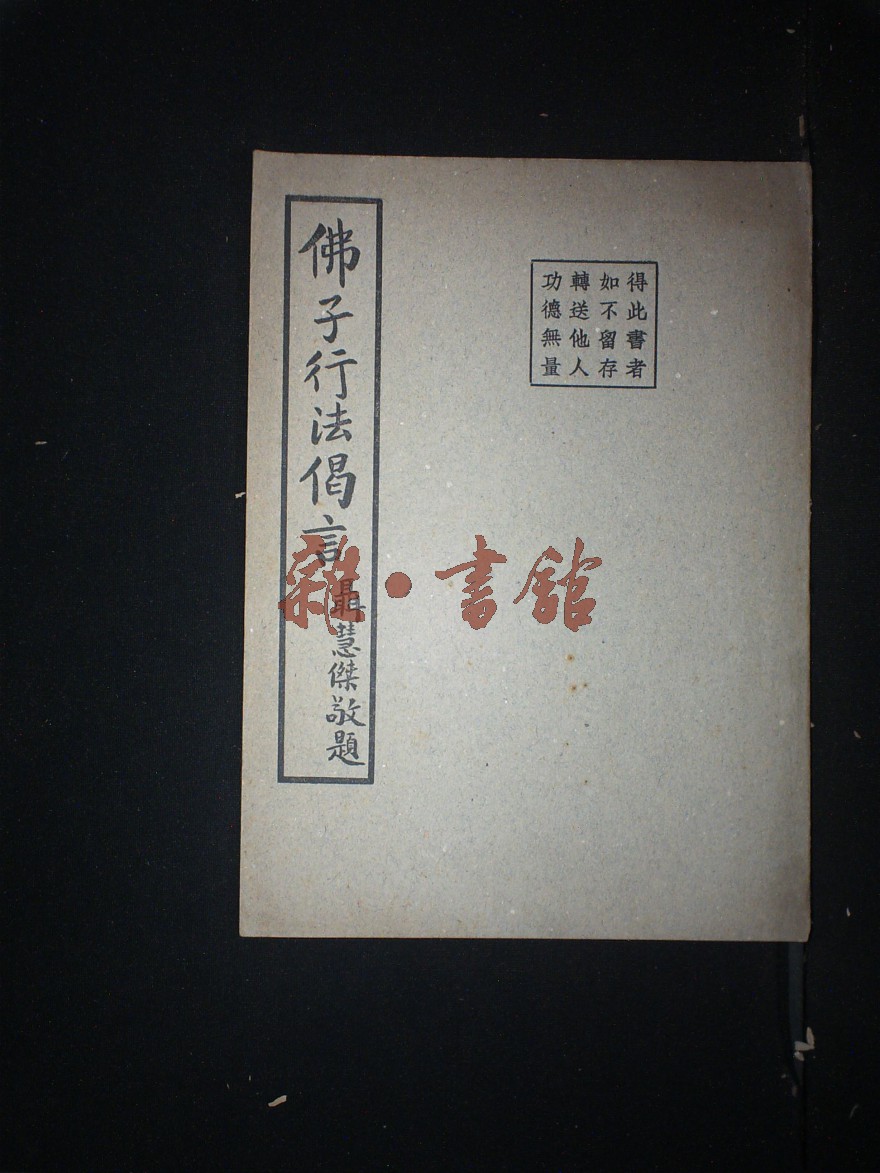 得此書者
如不留存
轉送他人
功德無量
佛子行法偈言
聶慧傑敬題
雜·書館